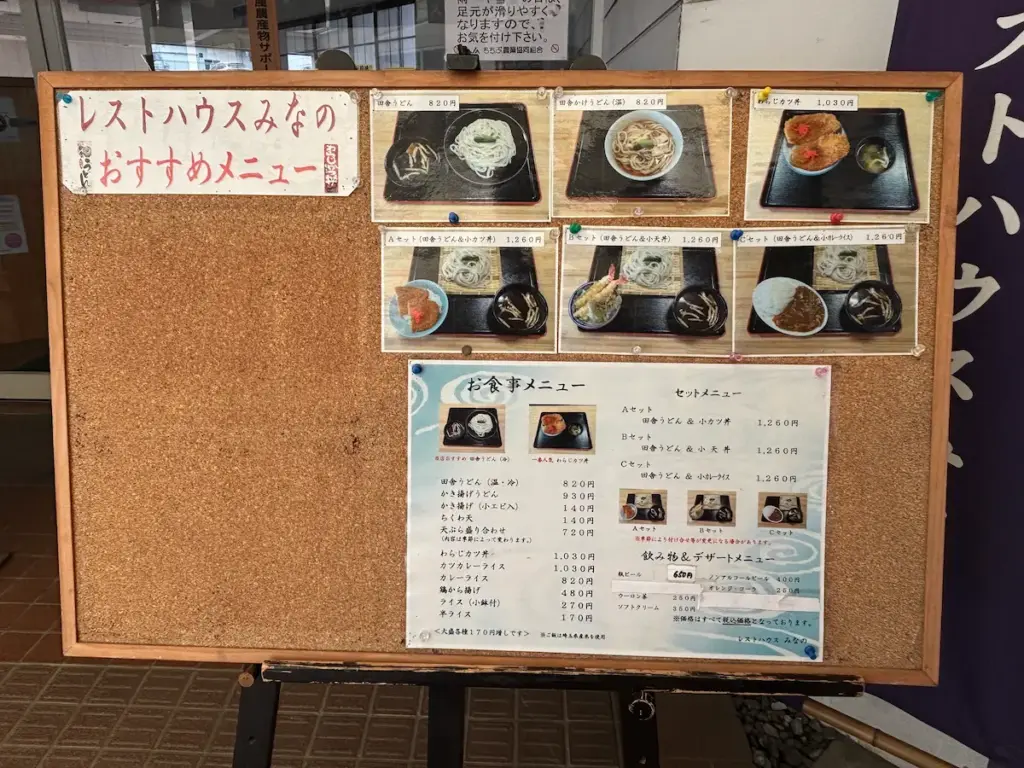 足元が滑りやすく
なりますので、
お気を付け下さい。
ちちぶ農業協同組合
農産物サポー
レストハウスみなの
おすすめメニュー
田舎うどん 820円
田舎かけうどん(温) 820円
わらじカツ丼 1,030円
Aセット(田舎うどん&小カツ丼) 1,260円
Bセット(田舎うどん&小天丼) 1,260円
Cセット(田舎うどん&小カレーライス) 1,260円
お食事メニュー
当店おすすめ 田舎うどん(冷)
一番人気 わらじカツ丼
田舎うどん(温・冷) 820円
かき揚げうどん 930円
かき揚げ(小エビ入) 140円
ちくわ天 140円
天ぷら盛り合わせ 720円
(内容は季節によって変わります。)
わらじカツ丼 1,030円
カツカレーライス 1,030円
カレーライス 820円
鶏から揚げ 480円
ライス(小鉢付) 270円
半ライス 170円
<大盛各種170円増しです>
※ご飯は埼玉県産米を使用
セットメニュー
Aセット
田舎うどん & 小カツ丼 1,260円
Bセット
田舎うどん & 小天丼 1,260円
Cセット
田舎うどん & 小カレーライス 1,260円
Aセット
Bセット
Cセット
※季節により付け合せ等が変更になる場合があります。
飲み物&デザートメニュー
瓶ビール 650円
ノンアルコールビール 400円
オレンジ・コーラ 250円
ウーロン茶 250円
ソフトクリーム 350円
※価格はすべて税込価格となっております。
レストハウス みなの
ストハウスみ